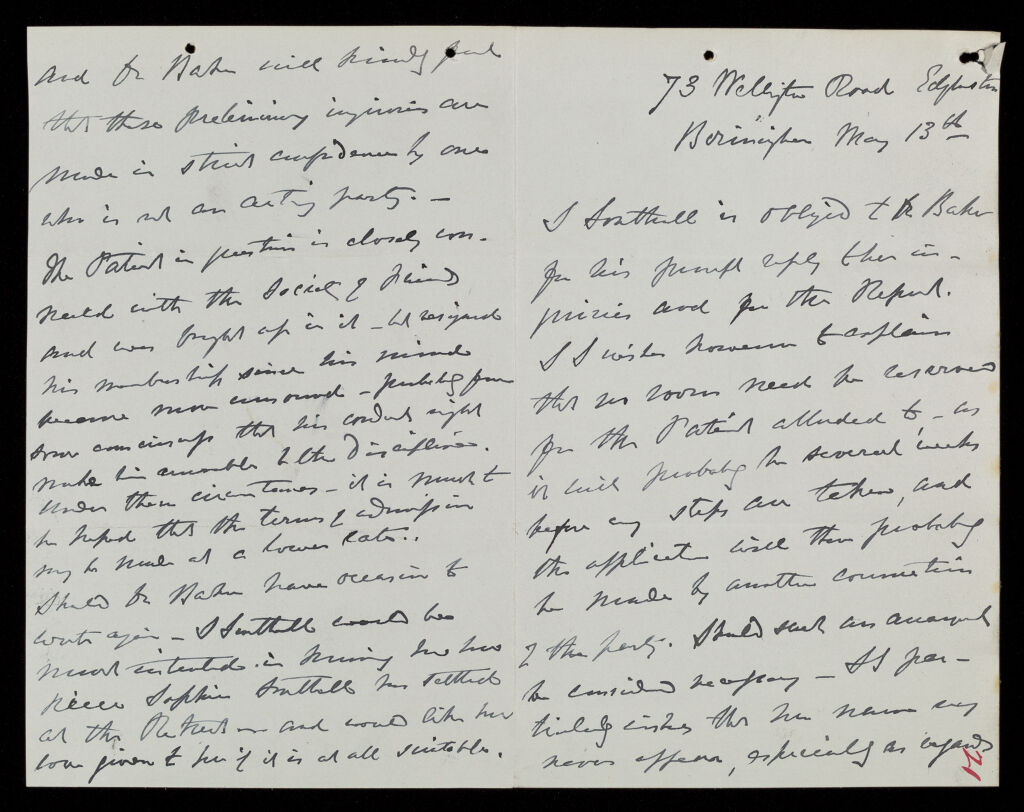 73 Wellington Road Edgbaston
Birmingham May 13th
S Southall is obliged to Dr Baker
for his prompt reply to her in-
quiries and for the Report.
S S wishes however to explain
that no room need be reserved
for the Patient alluded to - as
it will probably be several weeks
before any steps are taken, and
the application will then probably
be made by another connection
of the party. Should such an arrangmt
be considered necessary - S S par-
ticularly wishes that her name may
never appear, especially as regards
12
And Dr Baker will kindly
that these preliminary inquiries are
made in strict confidence by one
who is not an acting party. -
The Patient in question is closely con-
nected with the Society of Friends
and was brought up in it - but resigned
his membership since his mind
became more unsound - probably from
some consciousness that his conduct might
make him amenable to the Discipline.
Under these circumstances - it is much to
be hoped that the terms of admission
may be made at a lower rate..
Should Dr Baker have occasion to
write again - S Southall would be
much interested in knowing how her
niece Sophia Southall has settled
at the Retreat - and would like her
love given to her if it is at all suitable.